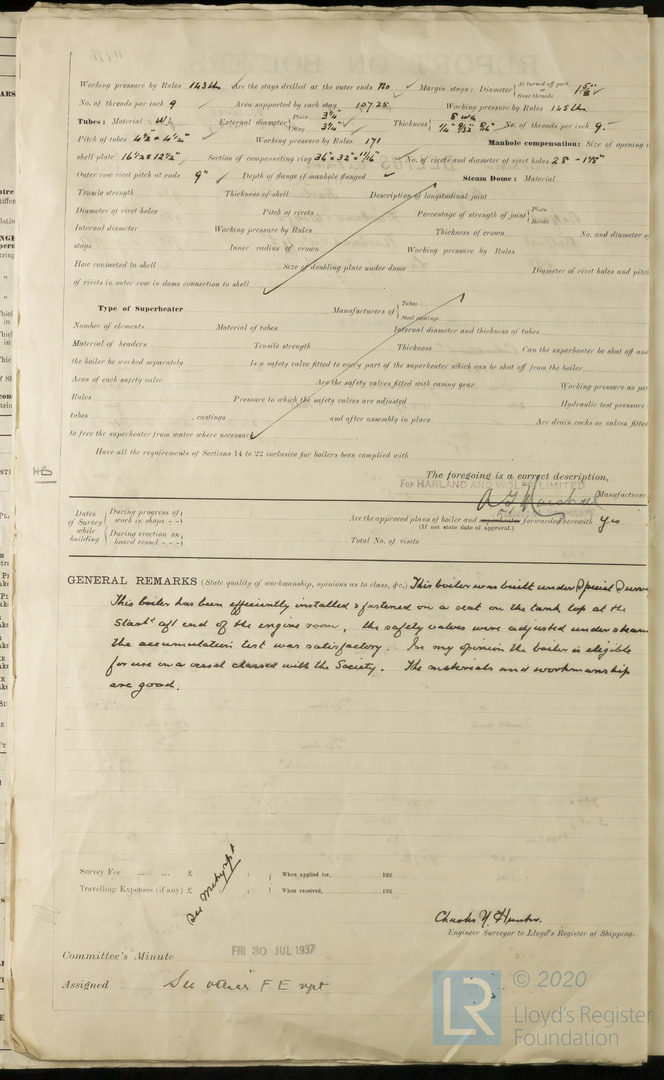 Working pressure by Rules 143 lb. Are the stays drilled at the outer ends No Margin stays: Diameter { At turned off part, or Over threads 1 5/8"
No. of threads per inch 9 Area supported by each stay 107.25 Working pressure by Rules 145 lb.
Tubes: Material W.I. External diameter { Plain 3 1/4" Stay 3 1/4" Thickness { 8 WG 1/4" 9/32" 5/16" No. of threads per inch 9.
Pitch of tubes 4 1/2" x 4 1/2" Working pressure by Rules 171 Manhole compensation: Size of opening
shell plate 16 1/2 x 12 1/2" Section of compensating ring 36" x 32" x 1 1/16" No. of rivets and diameter of rivet holes 28 -
Outer row rivet pitch at ends 9" Depth of flange if manhole flanged Steam Dome: Material
Tensile strength Thickness of shell Description of longitudinal joint
Diameter of rivet holes Pitch of rivets Percentage of strength of joint { Plate Rivets
Internal diameter Working pressure by Rules Thickness of crown No. and diameter
stays Inner radius of crown Working pressure by Rules
How connected to shell Size of doubling plate under dome Diameter of rivet holes and pitch
of rivets in outer row in dome connection to shell
Type of Superheater Manufacturers of { Tubes Steel castings
Number of elements Material of tubes Internal diameter and thickness of tubes
Material of headers Tensile strength Thickness Can the superheater be shut off and
the boiler be worked separately Is a safety valve fitted to every part of the superheater which can be shut off from the boiler
Area of each safety valve Are the safety valves fitted with easing gear Working pressure as per
Rules Pressure to which the safety valves are adjusted Hydraulic test pressure
tubes , castings and after assembly in place Are drain cocks or valves fitted
to free the superheater from water where necessary
Have all the requirements of Sections 14 to 22 inclusive for boilers been complied with
The foregoing is a correct description,
For HARLAND AND WOLFF LIMITED
A G Marshall Manufacturer.
Dates of Survey while building { During progress of work in shops - - } { During erection on board vessel - - - }
Are the approved plans of boiler and superheater forwarded herewith Yes
(If not state date of approval.)
Total No. of visits
GENERAL REMARKS (State quality of workmanship, opinions as to class, &c.) This boiler was built under Special
This boiler has been efficiently installed & fastened on a seat on the tank top at the
Starbd aft end of the engine room, the safety valves were adjusted under steam
the accumulation test was satisfactory. In my opinion the boiler is eligible
for use on a vessel classed with the Society. The materials and workmanship
are good.
Survey Fee ... ... £ : : When applied for, 192
Travelling Expenses (if any) £ : : When received, 192
Charles N. Hunter.
Engineer Surveyor to Lloyd's Register of Shipping.
Committee's Minute FRI 30 JUL 1937
Assigned See other F.E rpt
HB
© 2020
LR
Lloyd's Register
Foundation